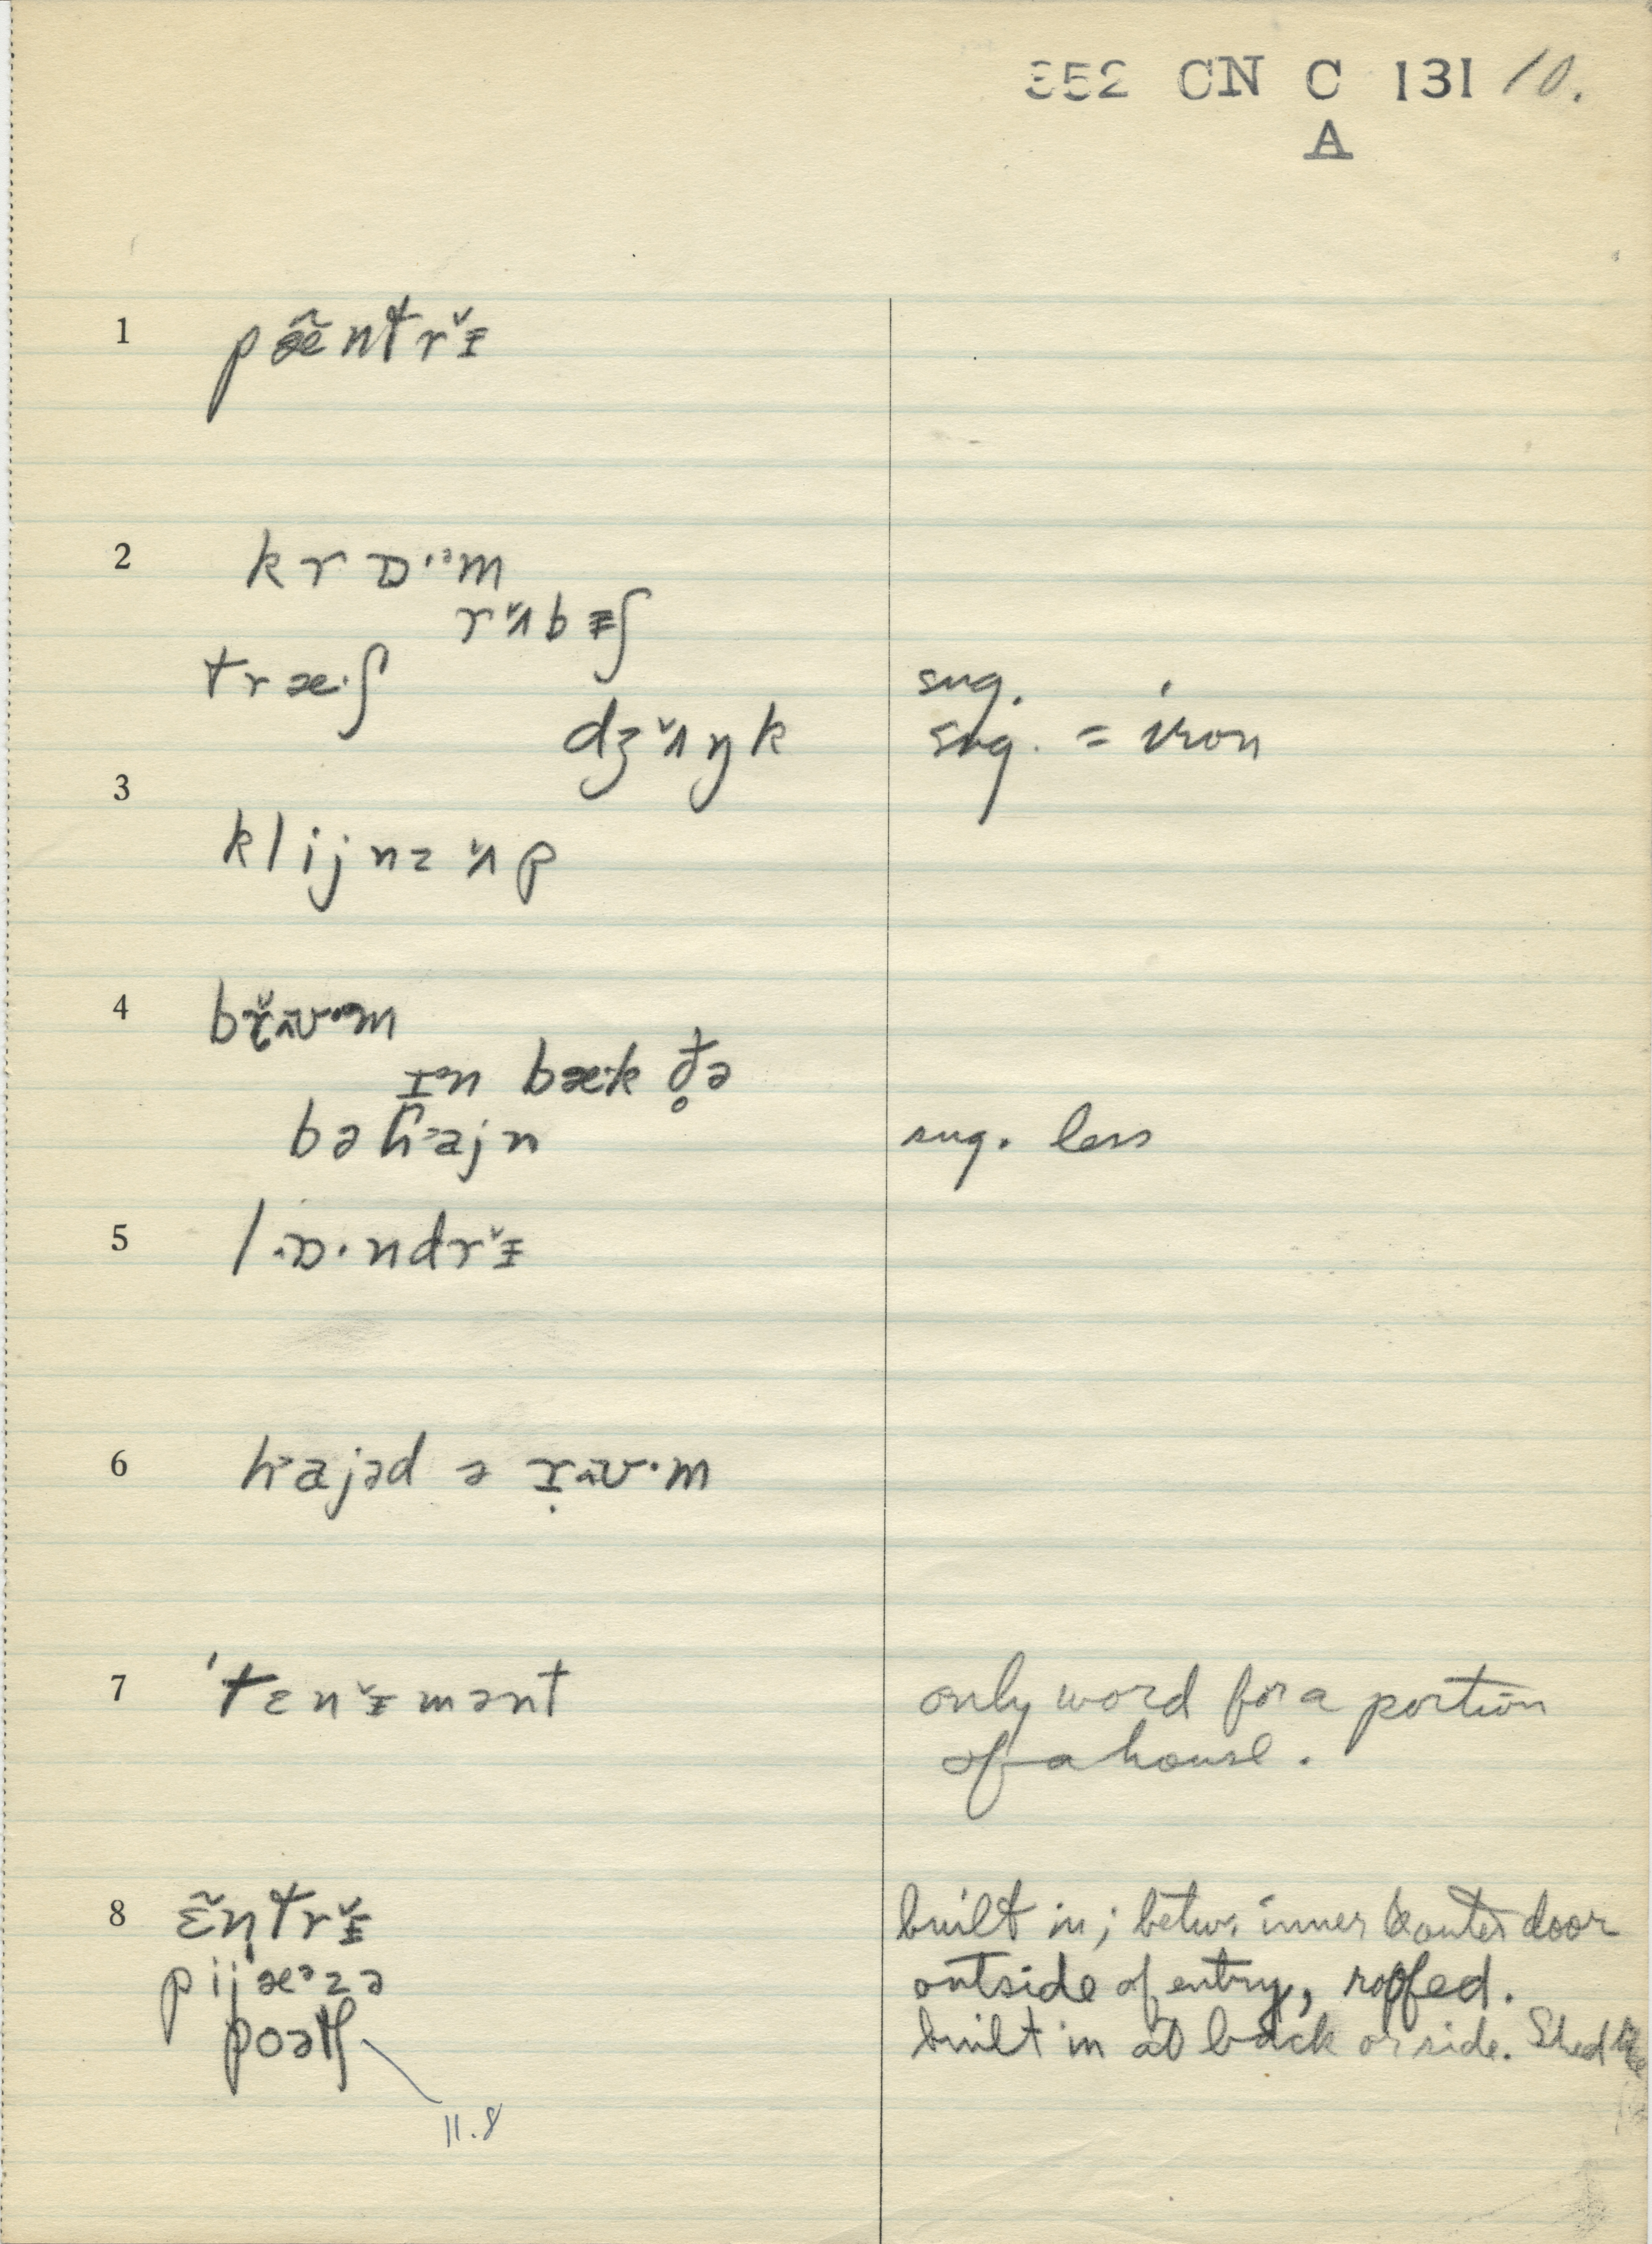 352 CN C 131 10.
A
1 pæ̃ntrɪ̆
2 krɒ·ᵊm
rʌ̆bɪʃ
træ·ʃ sug.
dʒʌ̆ŋk sug. = iron
3
klijnzʌ̆p
4
ɪn bæk ðə
bəhajn sug. less
5 lɒ·ndrɪ̆
6 hajəd ə
7 ˈtɛnɪ̆mənt only word for a portion
of a house.
8 ɛ̃ntrɪ̆ built in; betw. inner & outer door
pijæᵊzə outside of entry, roofed.
poətʃ built in at back or side. Shed
11.8